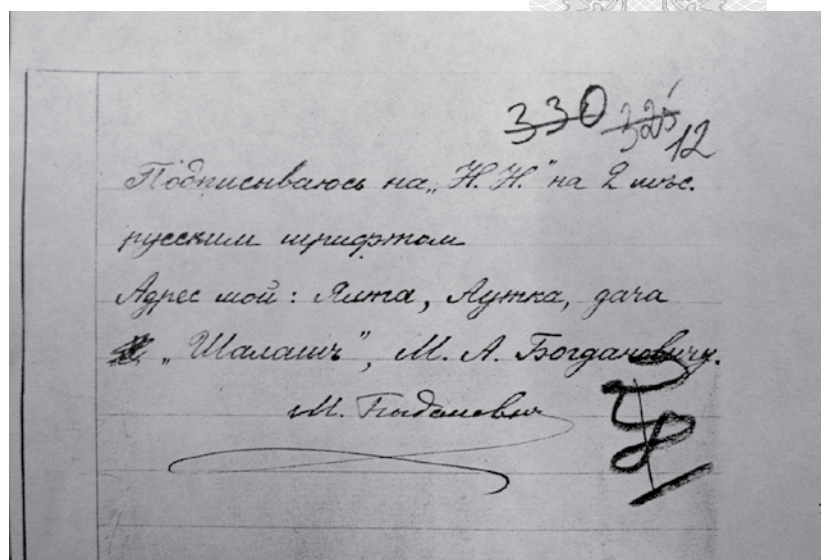 330 325
12
Подписываюсь на „Н. Н." на 2 мѣс.
русским шрифтом
Адрес мой: Ялта, Аутка, дача
„Шалашъ", М. А. Богдановичу.
М.